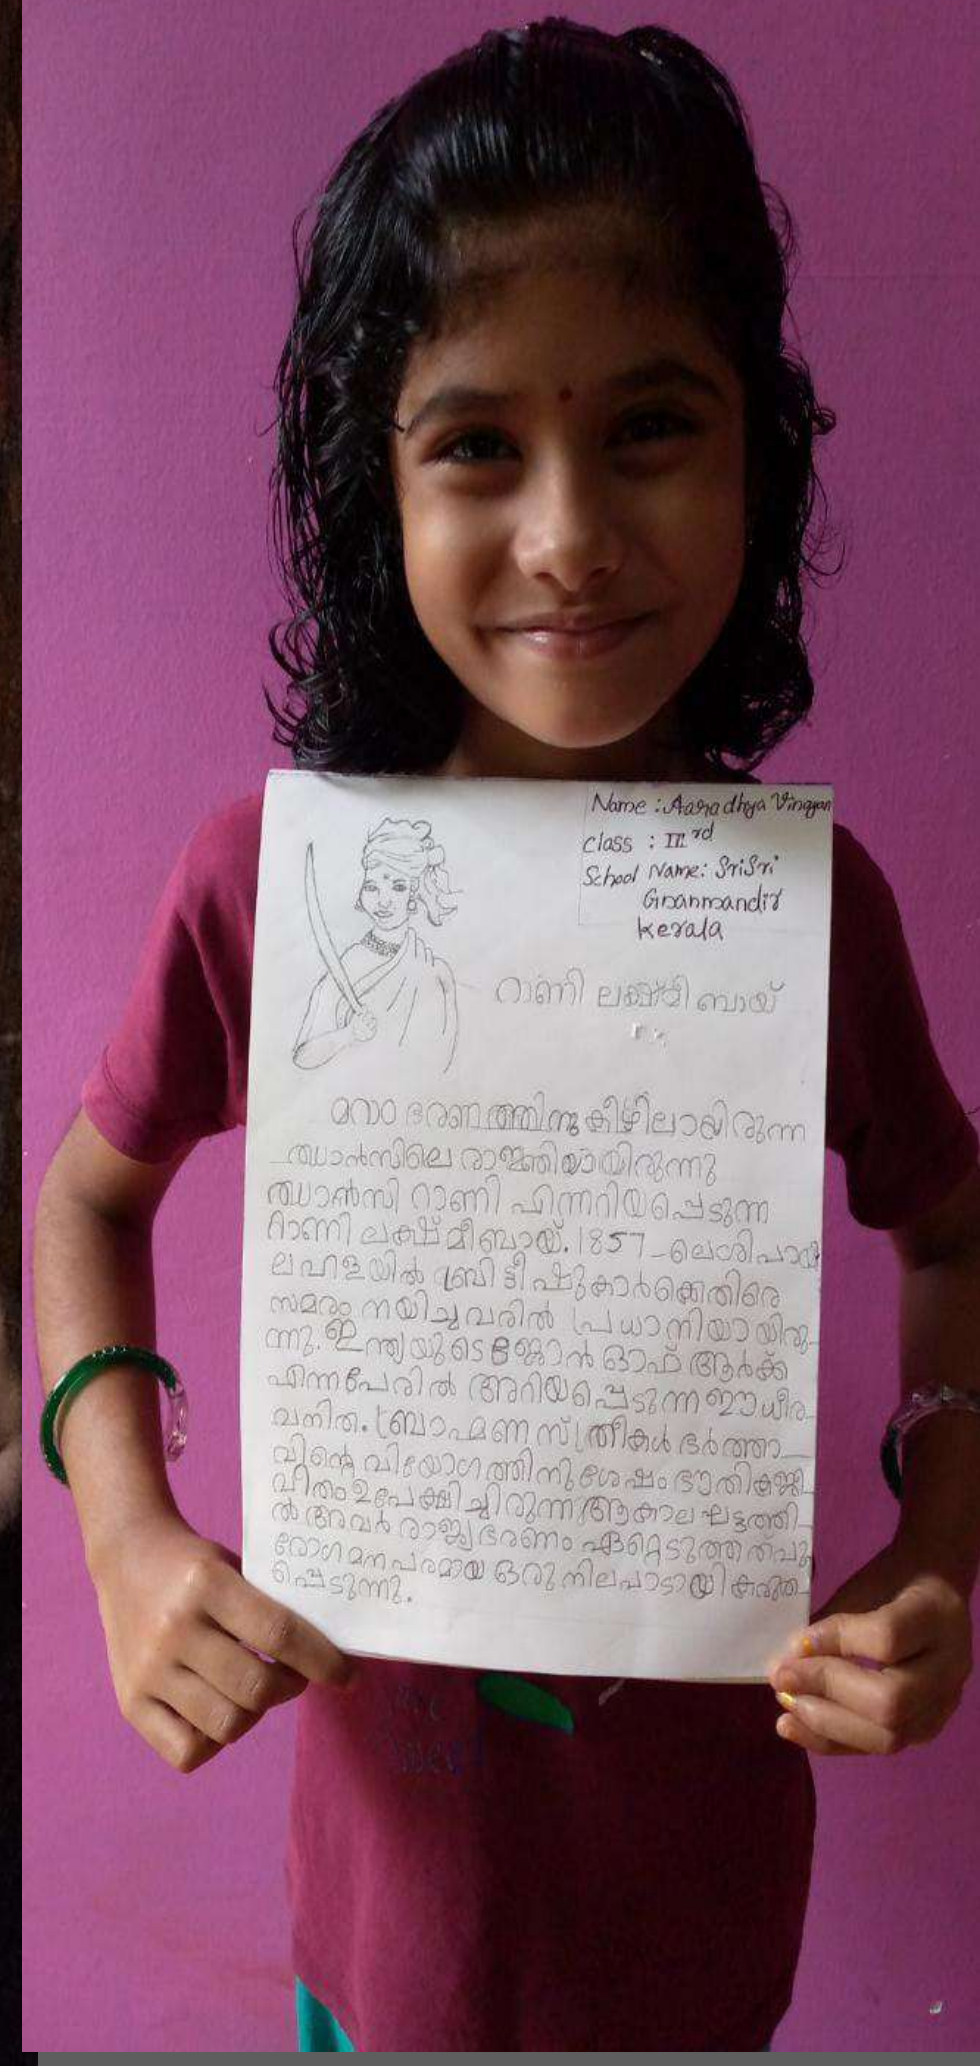 Name : Aaradhya Vinayan
Class : III rd
School Name: SriSri
Gnanmandir
kerala
റാണി ലക്ഷ്മി ബായ്
മറാഠ ഭരണത്തിനു കീഴിലായിരുന്ന
ഝാൻസിലെ രാജ്ഞിയായിരുന്നു
ഝാൻസി റാണി എന്നറിയപ്പെടുന്ന
റാണി ലക്ഷ്മീബായ്. 1857-ലെ ശിപായി
ലഹളയിൽ ബ്രിട്ടീഷുകാർക്കെതിരെ
സമരം നയിച്ചവരിൽ പ്രധാനിയായിരു-
ന്നു. ഇന്ത്യയുടെ ജോൻ ഓഫ് ആർക്ക്
എന്നപേരിൽ അറിയപ്പെടുന്ന ഈ ധീര-
വനിത. ബ്രാഹ്മണ സ്ത്രീകൾ ഭർത്താ-
വിന്റെ വിയോഗത്തിനു ശേഷം ഭൗതികജീ-
വിതം ഉപേക്ഷിച്ചിരുന്ന ആകാലഘട്ടത്തി-
ൽ അവർ രാജ്യഭരണം ഏറ്റെടുത്തത് പു
രോഗമനപരമായ ഒരു നിലപാടായി കരുത-
പ്പെടുന്നു.